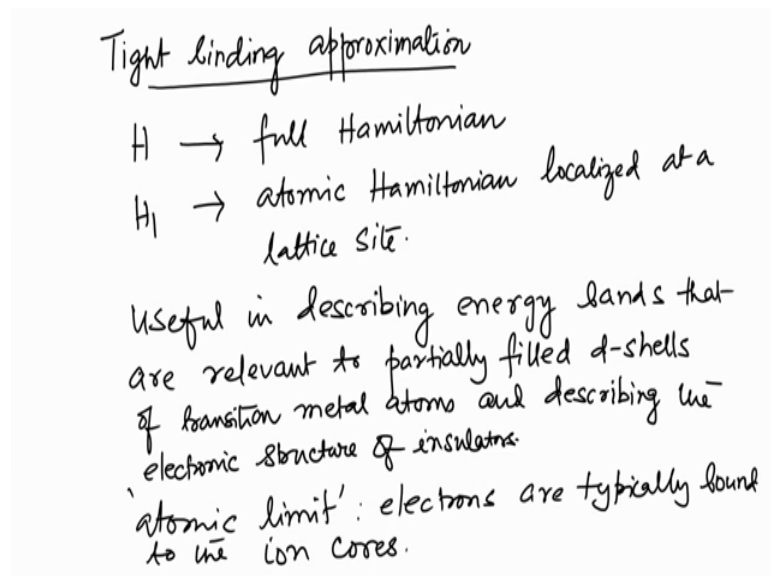 Tight binding approximation
H → full Hamiltonian
H₁ → atomic Hamiltonian localized at a
lattice site.
Useful in describing energy bands that
are relevant to partially filled d-shells
of transition metal atoms and describing the
electronic structure of insulators.
'atomic limit': electrons are typically bound
to the ion cores.